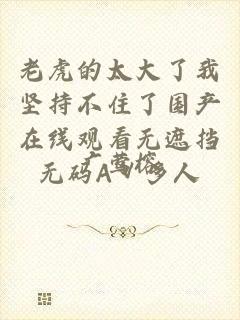 老虎的太大了我
坚持不住了国产
在线观看无遮挡
无码AV多人